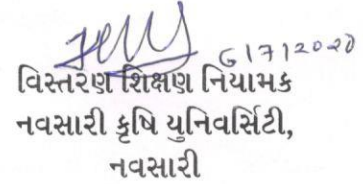 61712020
વિસ્તરણ શિક્ષણ નિયામક
નવસારી કૃષિ યુનિવર્સિટી,
નવસારી